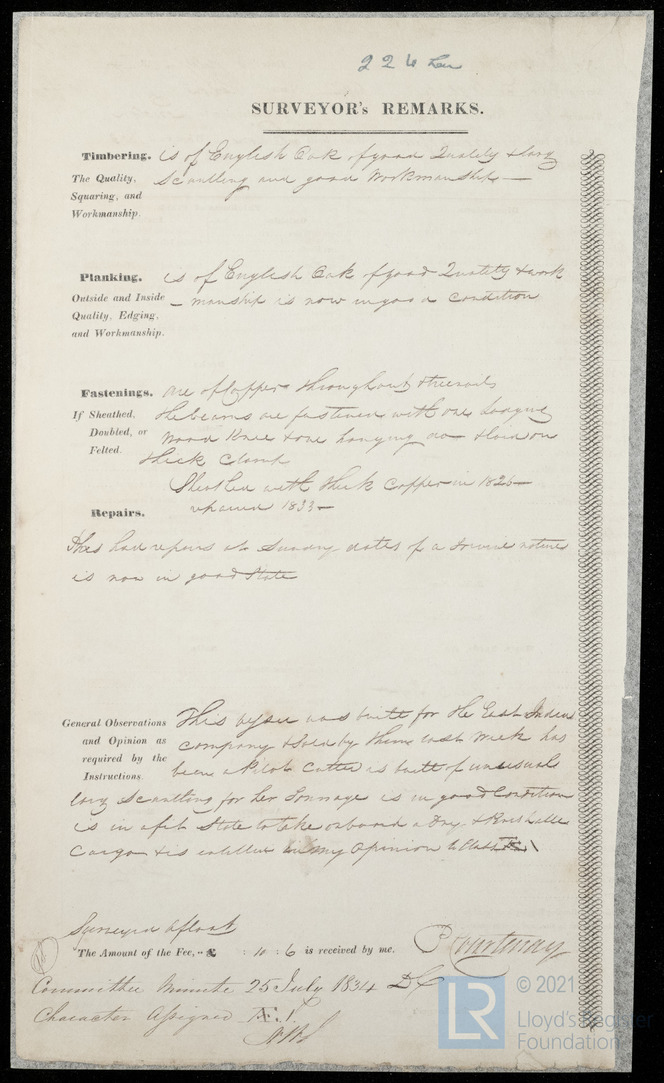 224 Lon
SURVEYOR's REMARKS.
Timbering. is of English Oak of good Quality & larg
The Quality, Scantling and good Workmanship —
Squaring, and
Workmanship.
Planking. is of English Oak of good Quality & work
Outside and Inside – manship is now in good condition
Quality, Edging,
and Workmanship.
Fastenings. are of Copper throughout & treenails
If Sheathed, the beams are fastened with one Lodging
Doubled, or Wood Knee & one hanging do & laid on
Felted. thick Clamp
Sheathed with thick Copper in 1826 —
Repairs. repaired 1833 —
Has had repairs at Sundry dates of a
is now in good State
General Observations This vessel was built for the East India
and Opinion as Company & Sold by them last week has
required by the been a Pilot Cutter is built of unusual
Instructions
larg Scantling for her Tonnage is in good Condition
is in a fit State to take onboard a Dry & Perishable
Cargo & is entitled in my Opinion to Class Æ 1
Surveyed afloat
The Amount of the Fee, - £ : 10 : 6 is received by me. P Courtenay
Committee Minute 25 July 1834
Character Assigned Æ. 1.
LR © 2021
Lloyd's Register
Foundation